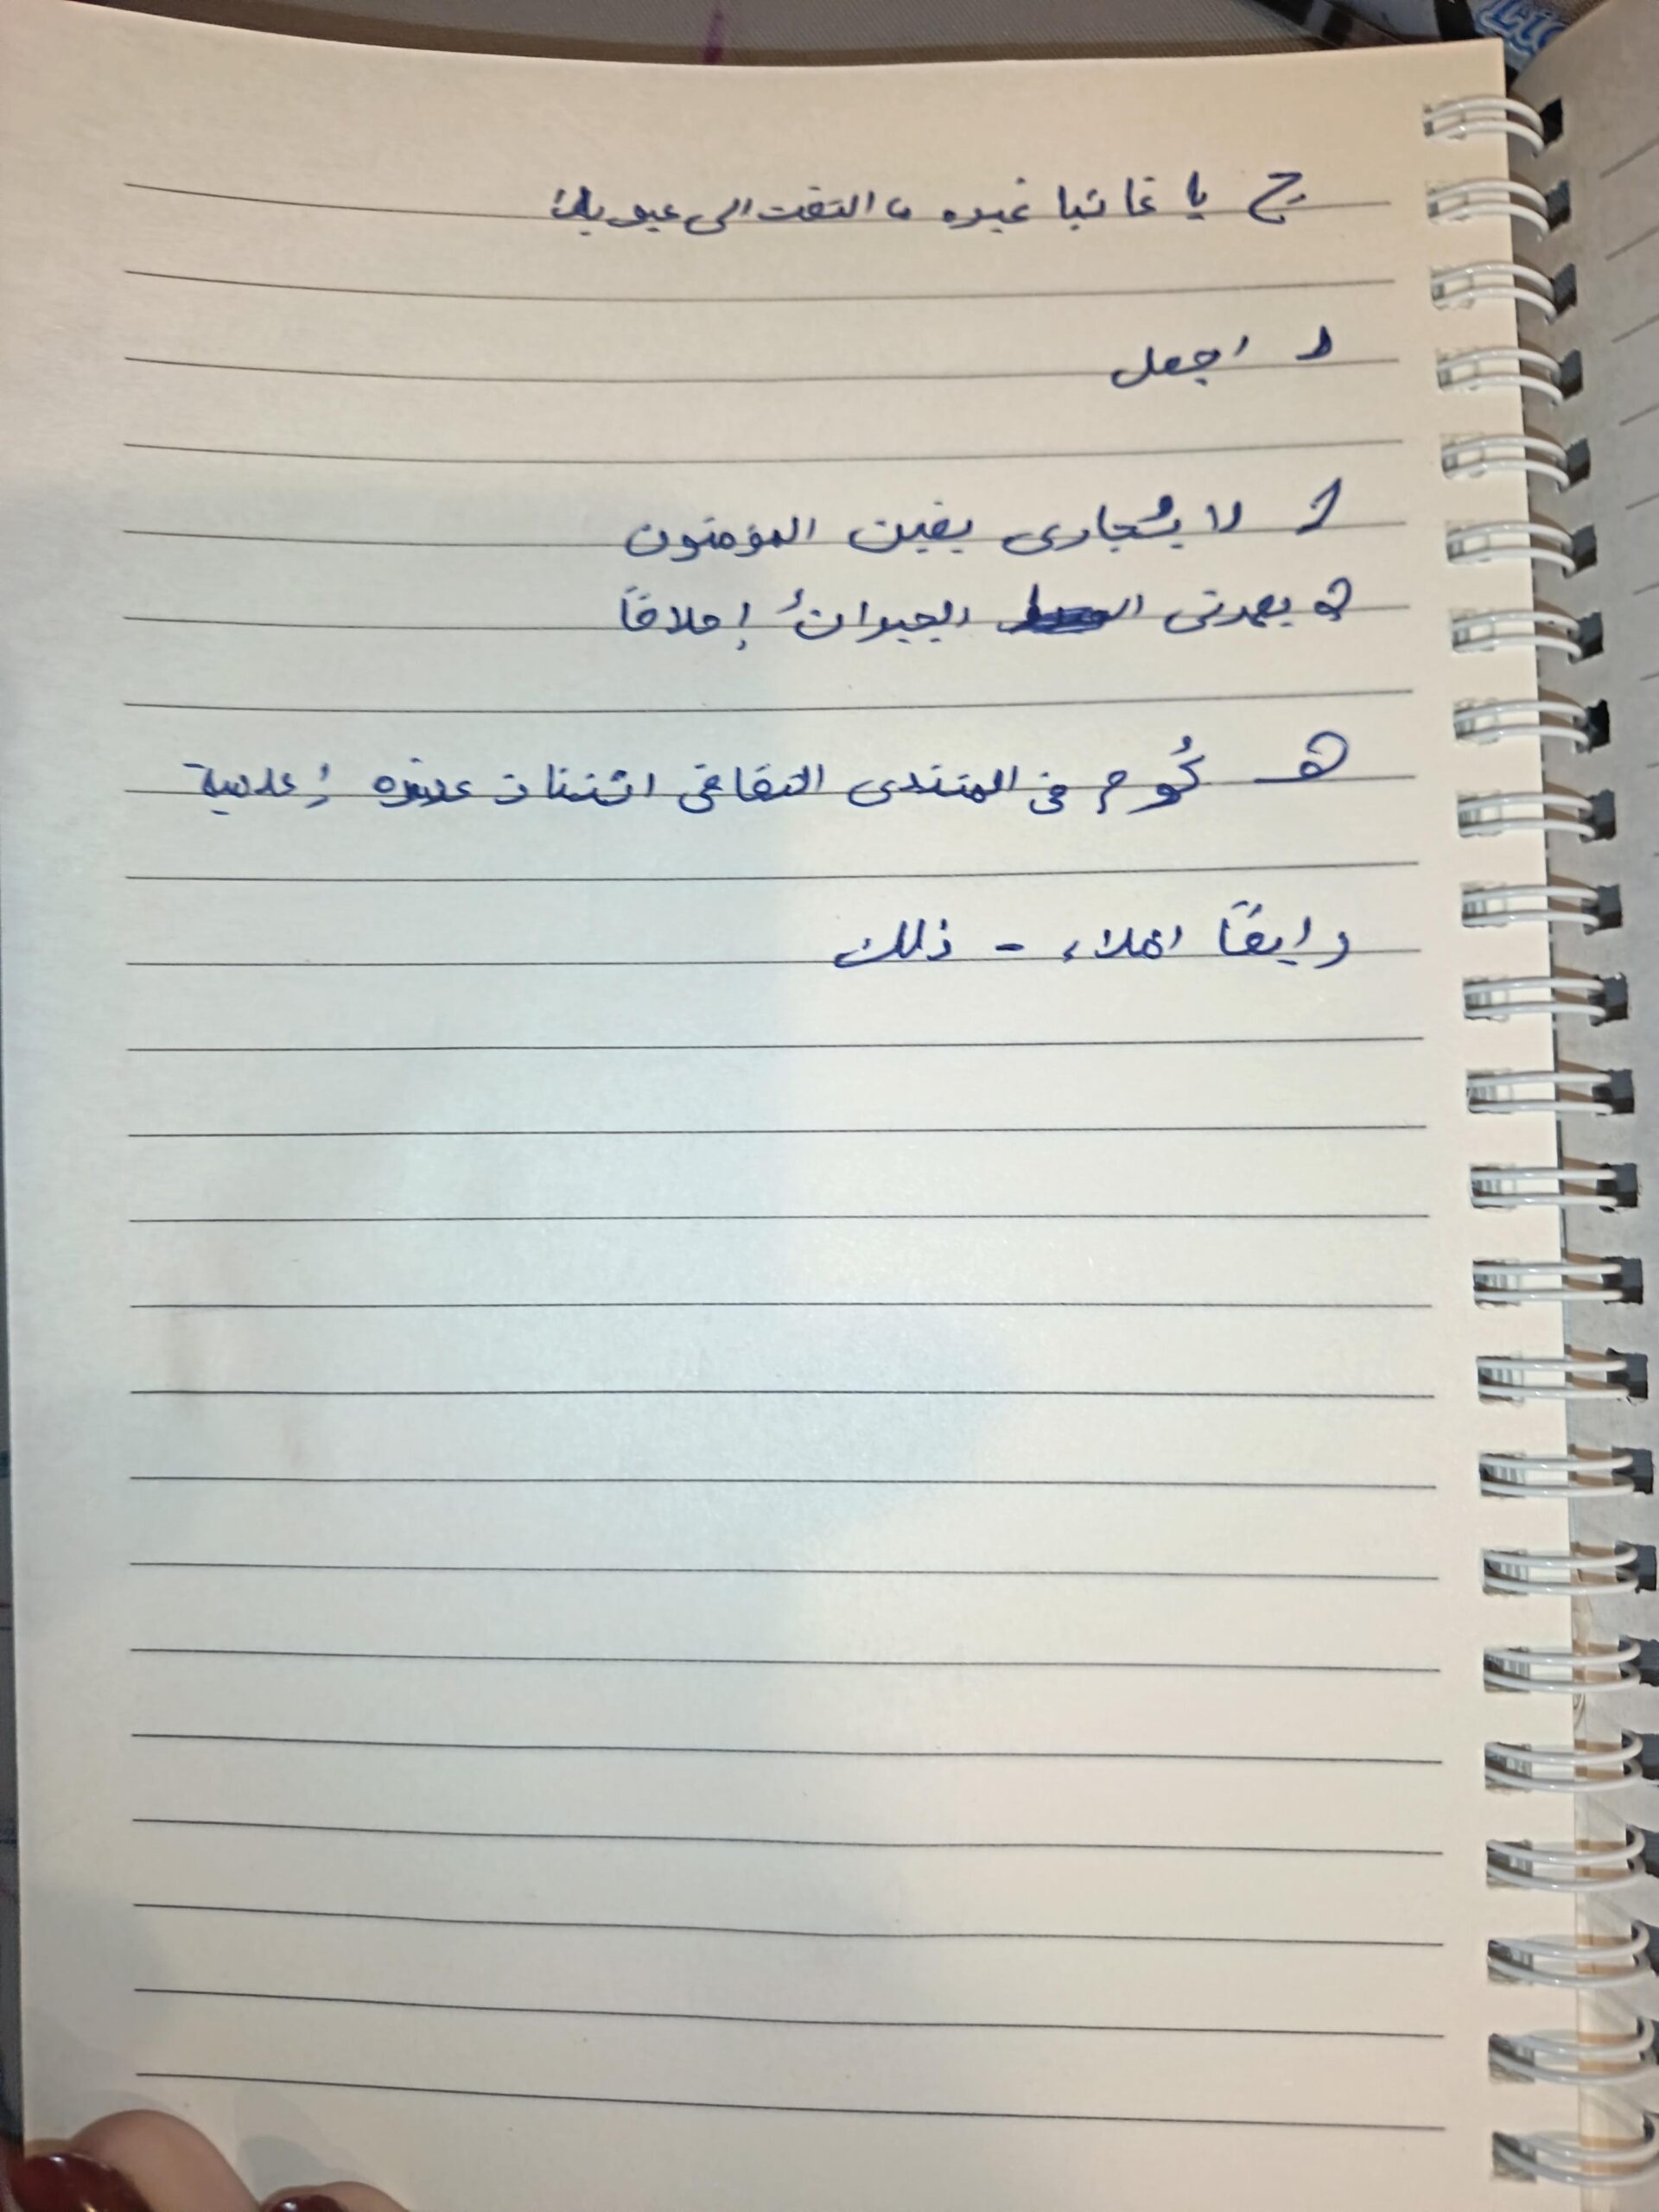 ج يا غائبا غيره ، التفت الى عيوبك
د اجعل
1 لا يُجارى يقين المؤمنون
2 يصدق الجيران إخلاقًا
هـ كُرم في المنتدى الثقافي اثنتان عشره إعلامية
و ايقًا املاء - ذلك